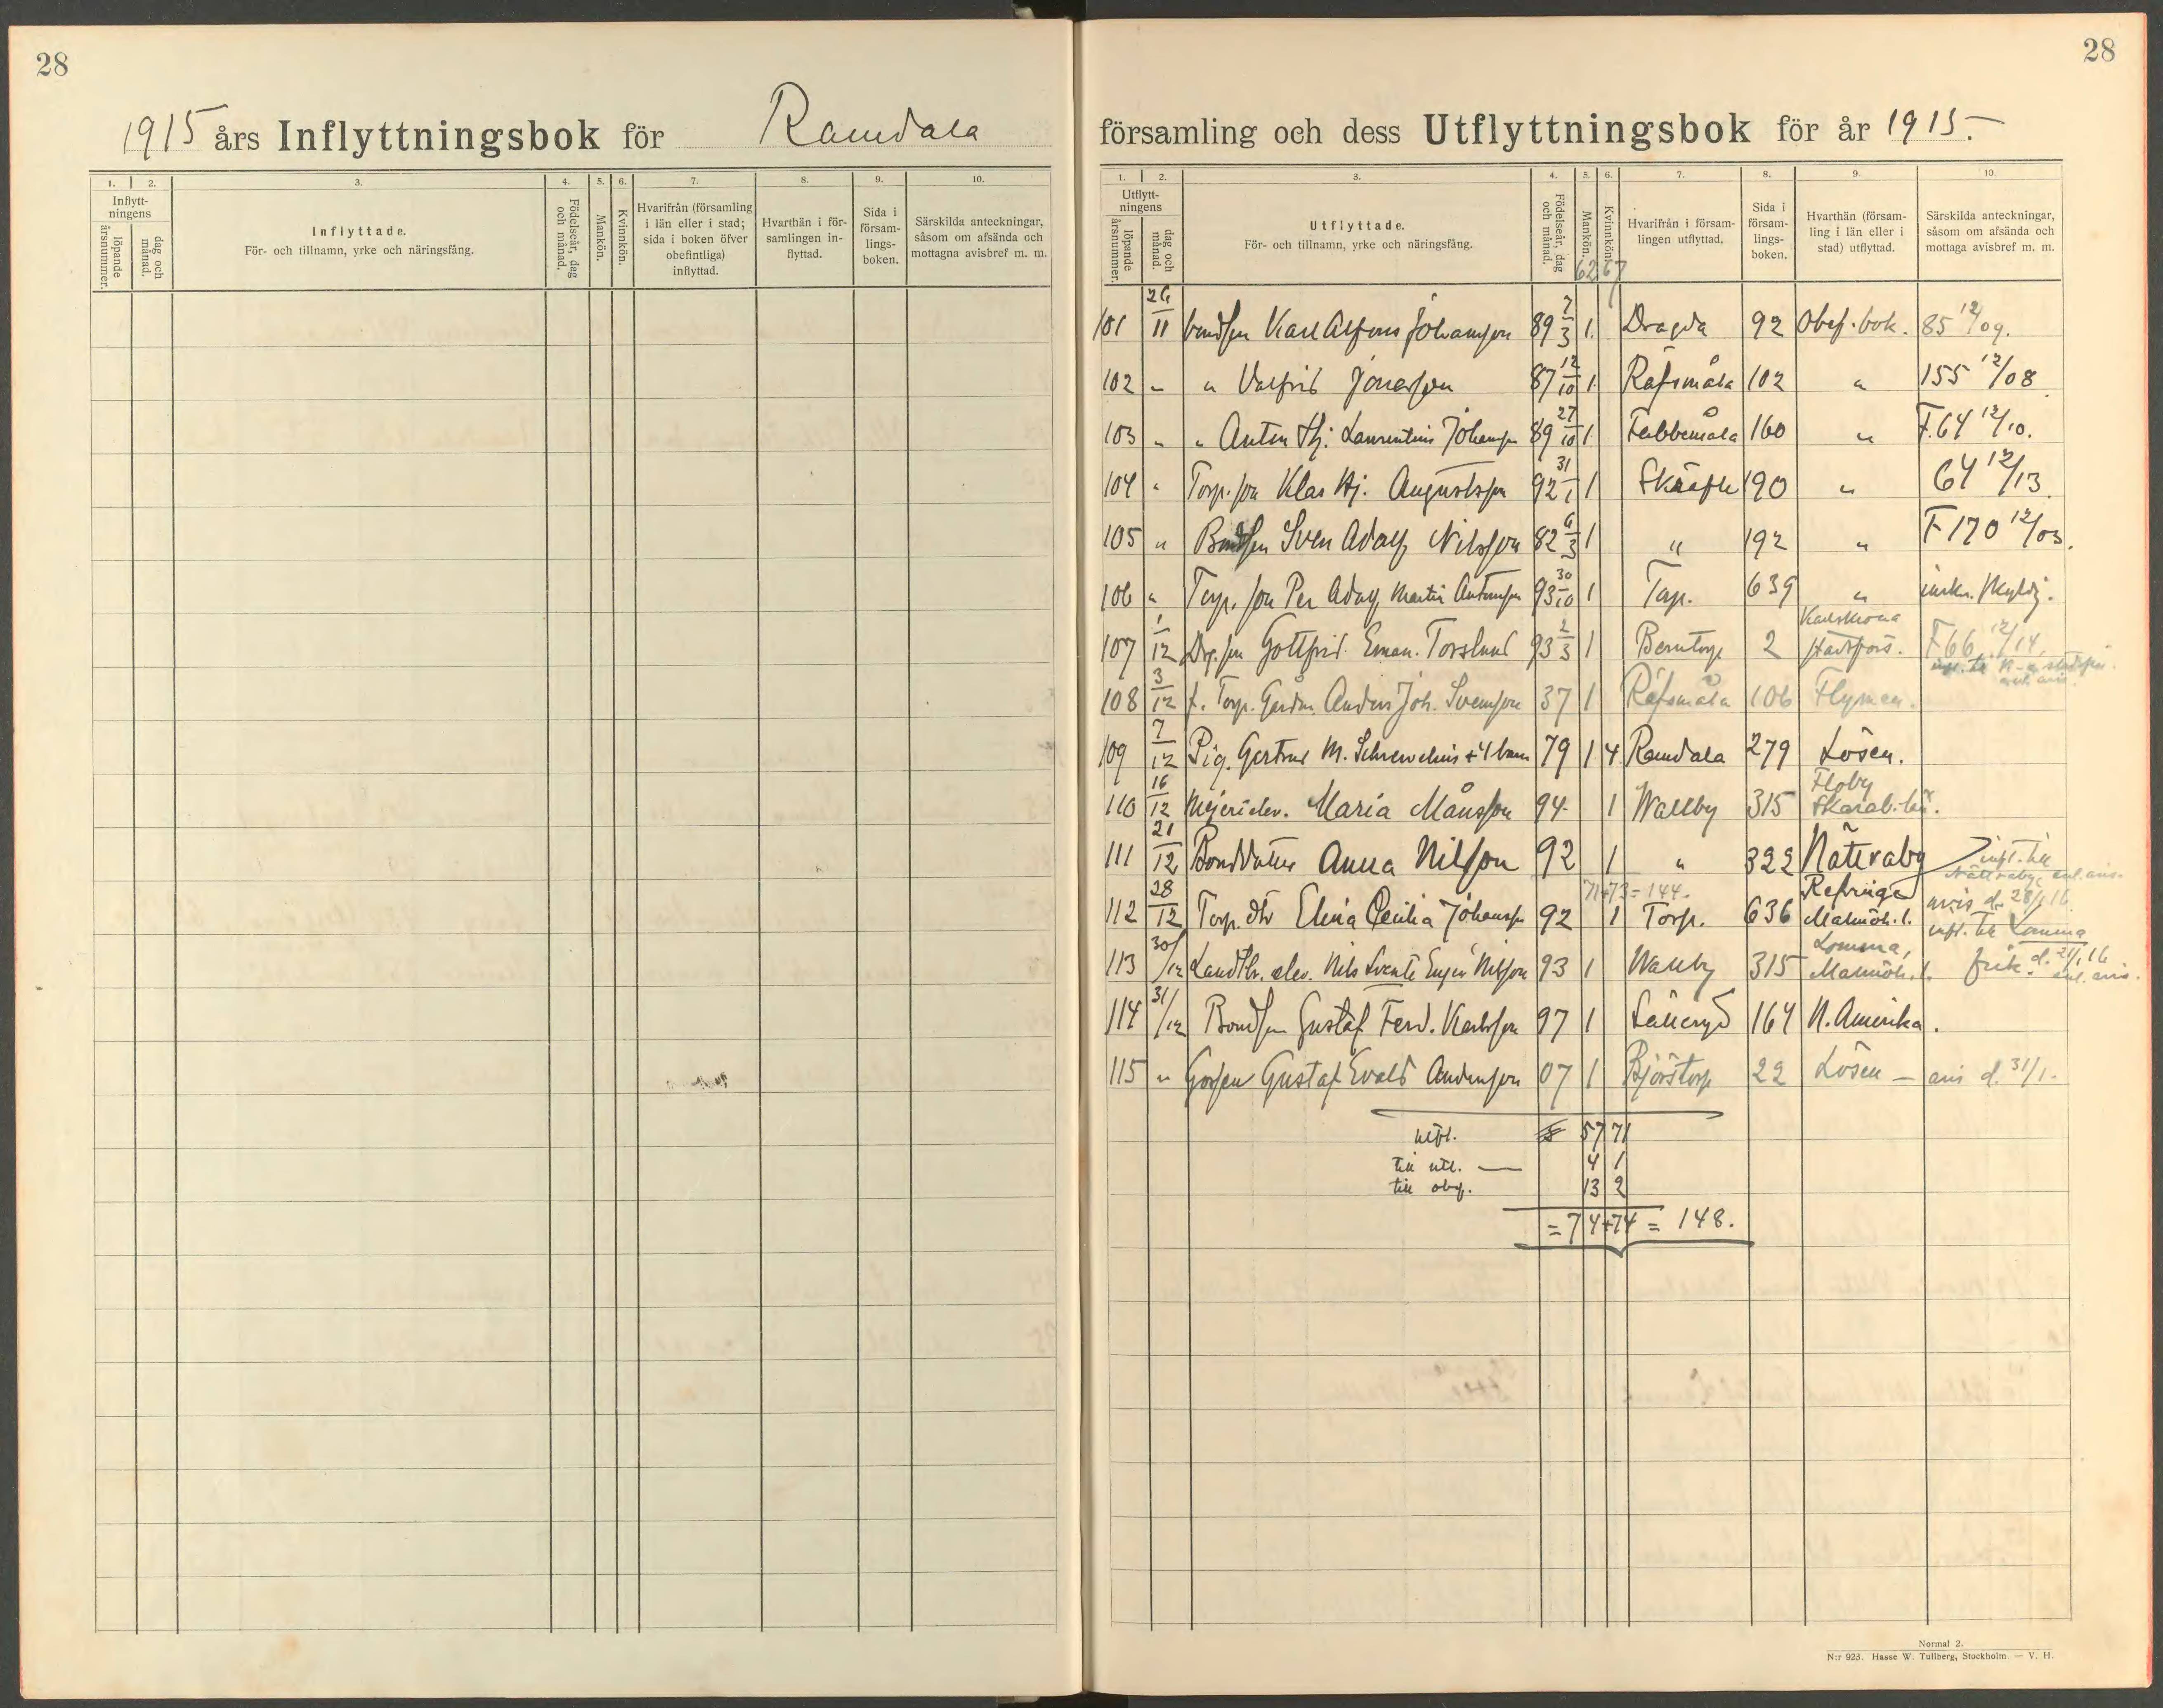 28
1915 års Inflyttningsbok för Ramdala
1. 2. 3. 4. 5. 6. 7. 8. 9. 10.
Inflytt-
ningens
löpande årsnummer.
dag och månad.
Inflyttade.
För- och tillnamn, yrke och näringsfång.
Födelseår, dag och månad.
Mankön.
Kvinnkön.
Hvarifrån (församling
i län eller i stad;
sida i boken öfver
obefintliga)
inflyttad.
Hvarthän i för-
samlingen in-
flyttad.
Sida i
försam-
lings-
boken.
Särskilda anteckningar,
såsom om afsända och
mottagna avisbref m. m.
28
församling och dess Utflyttningsbok för år 1915.
1. 2. 3. 4. 5. 6. 7. 8. 9. 10.
Utflytt-
ningens
löpande årsnummer.
dag och månad.
Utflyttade.
För- och tillnamn, yrke och näringsfång.
Födelseår, dag och månad.
Mankön.
Kvinnkön.
Hvarifrån i försam-
lingen utflyttad.
Sida i
försam-
lings-
boken.
Hvarthän (försam-
ling i län eller i
stad) utflyttad.
Särskilda anteckningar,
såsom om afsända och
mottaga avisbref m. m.
62 67
101 26/11 bondson Karl Alfons Johansson 89 7/3 1. Dragda 92 Obef. bok. 85 12/09.
102 " " Valfrid Jonasson 87 12/10 1 Räfsmåla 102 " 155 12/08.
103 " " Anton Hj. Laurentius Johansson 89 27/10 1 Febbemåla 160 " F.64 12/10.
104 " Torp. son Klas Hj. Augustsson 92 31/1 1 Skäfte 190 " 64 12/13.
105 " Bondson Sven Adolf Nilsson 82 6/3 1 " 192 " F 170 12/03.
106 " Torp. son Per Adolf Martin Antonsson 93 30/10 1 Torp. 639 "
107 1/12 Drg. son Gottfrid Eman. Torslund 93 2/3 1 Berntorp 2 Karlskrona stadsförs. F 66 12/14.
108 3/12 f. Torp. Gårdm. Anders Joh. Svensson 37 1 Räfsmåla 106 Flymen.
109 7/12 Pig. Gertrud M. Schrewelius + 4 barn 79 1 4 Ramdala 279 Lösen.
110 16/12 Mejerielev. Maria Månsson 94 1 Wallby 315 Floby Skarab. län.
111 21/12 Bonddotter Anna Nilsson 92 1 " 322 Nätraby infl. till Nättraby enl. avis.
71+73=144.
112 28/12 Torp. dtr Elina Cecilia Johansson 92 1 Torp. 636 Refvinge Malmöh. l. avis d. 28/1 16
113 30/12 Landtbr. elev. Nils Svante Eugen Nilsson 93 1 Wallby 315 Lomma, Malmöh. l. infl. till Lomma d. 21/1 16 enl. avis.
114 31/12 Bondson Gustaf Ferd. Karlsson 97 1 Säleryd 164 N. Amerika.
115 " Gossen Gustaf Evald Andersson 07 1 Björstorp 22 Lösen – avis d. 31/1.
utfl. 57 71
till utl. — 4 1
till obef. 13 2
= 74+74 = 148.
Normal 2.
N:r 923. Hasse W. Tullberg, Stockholm. — V. H.